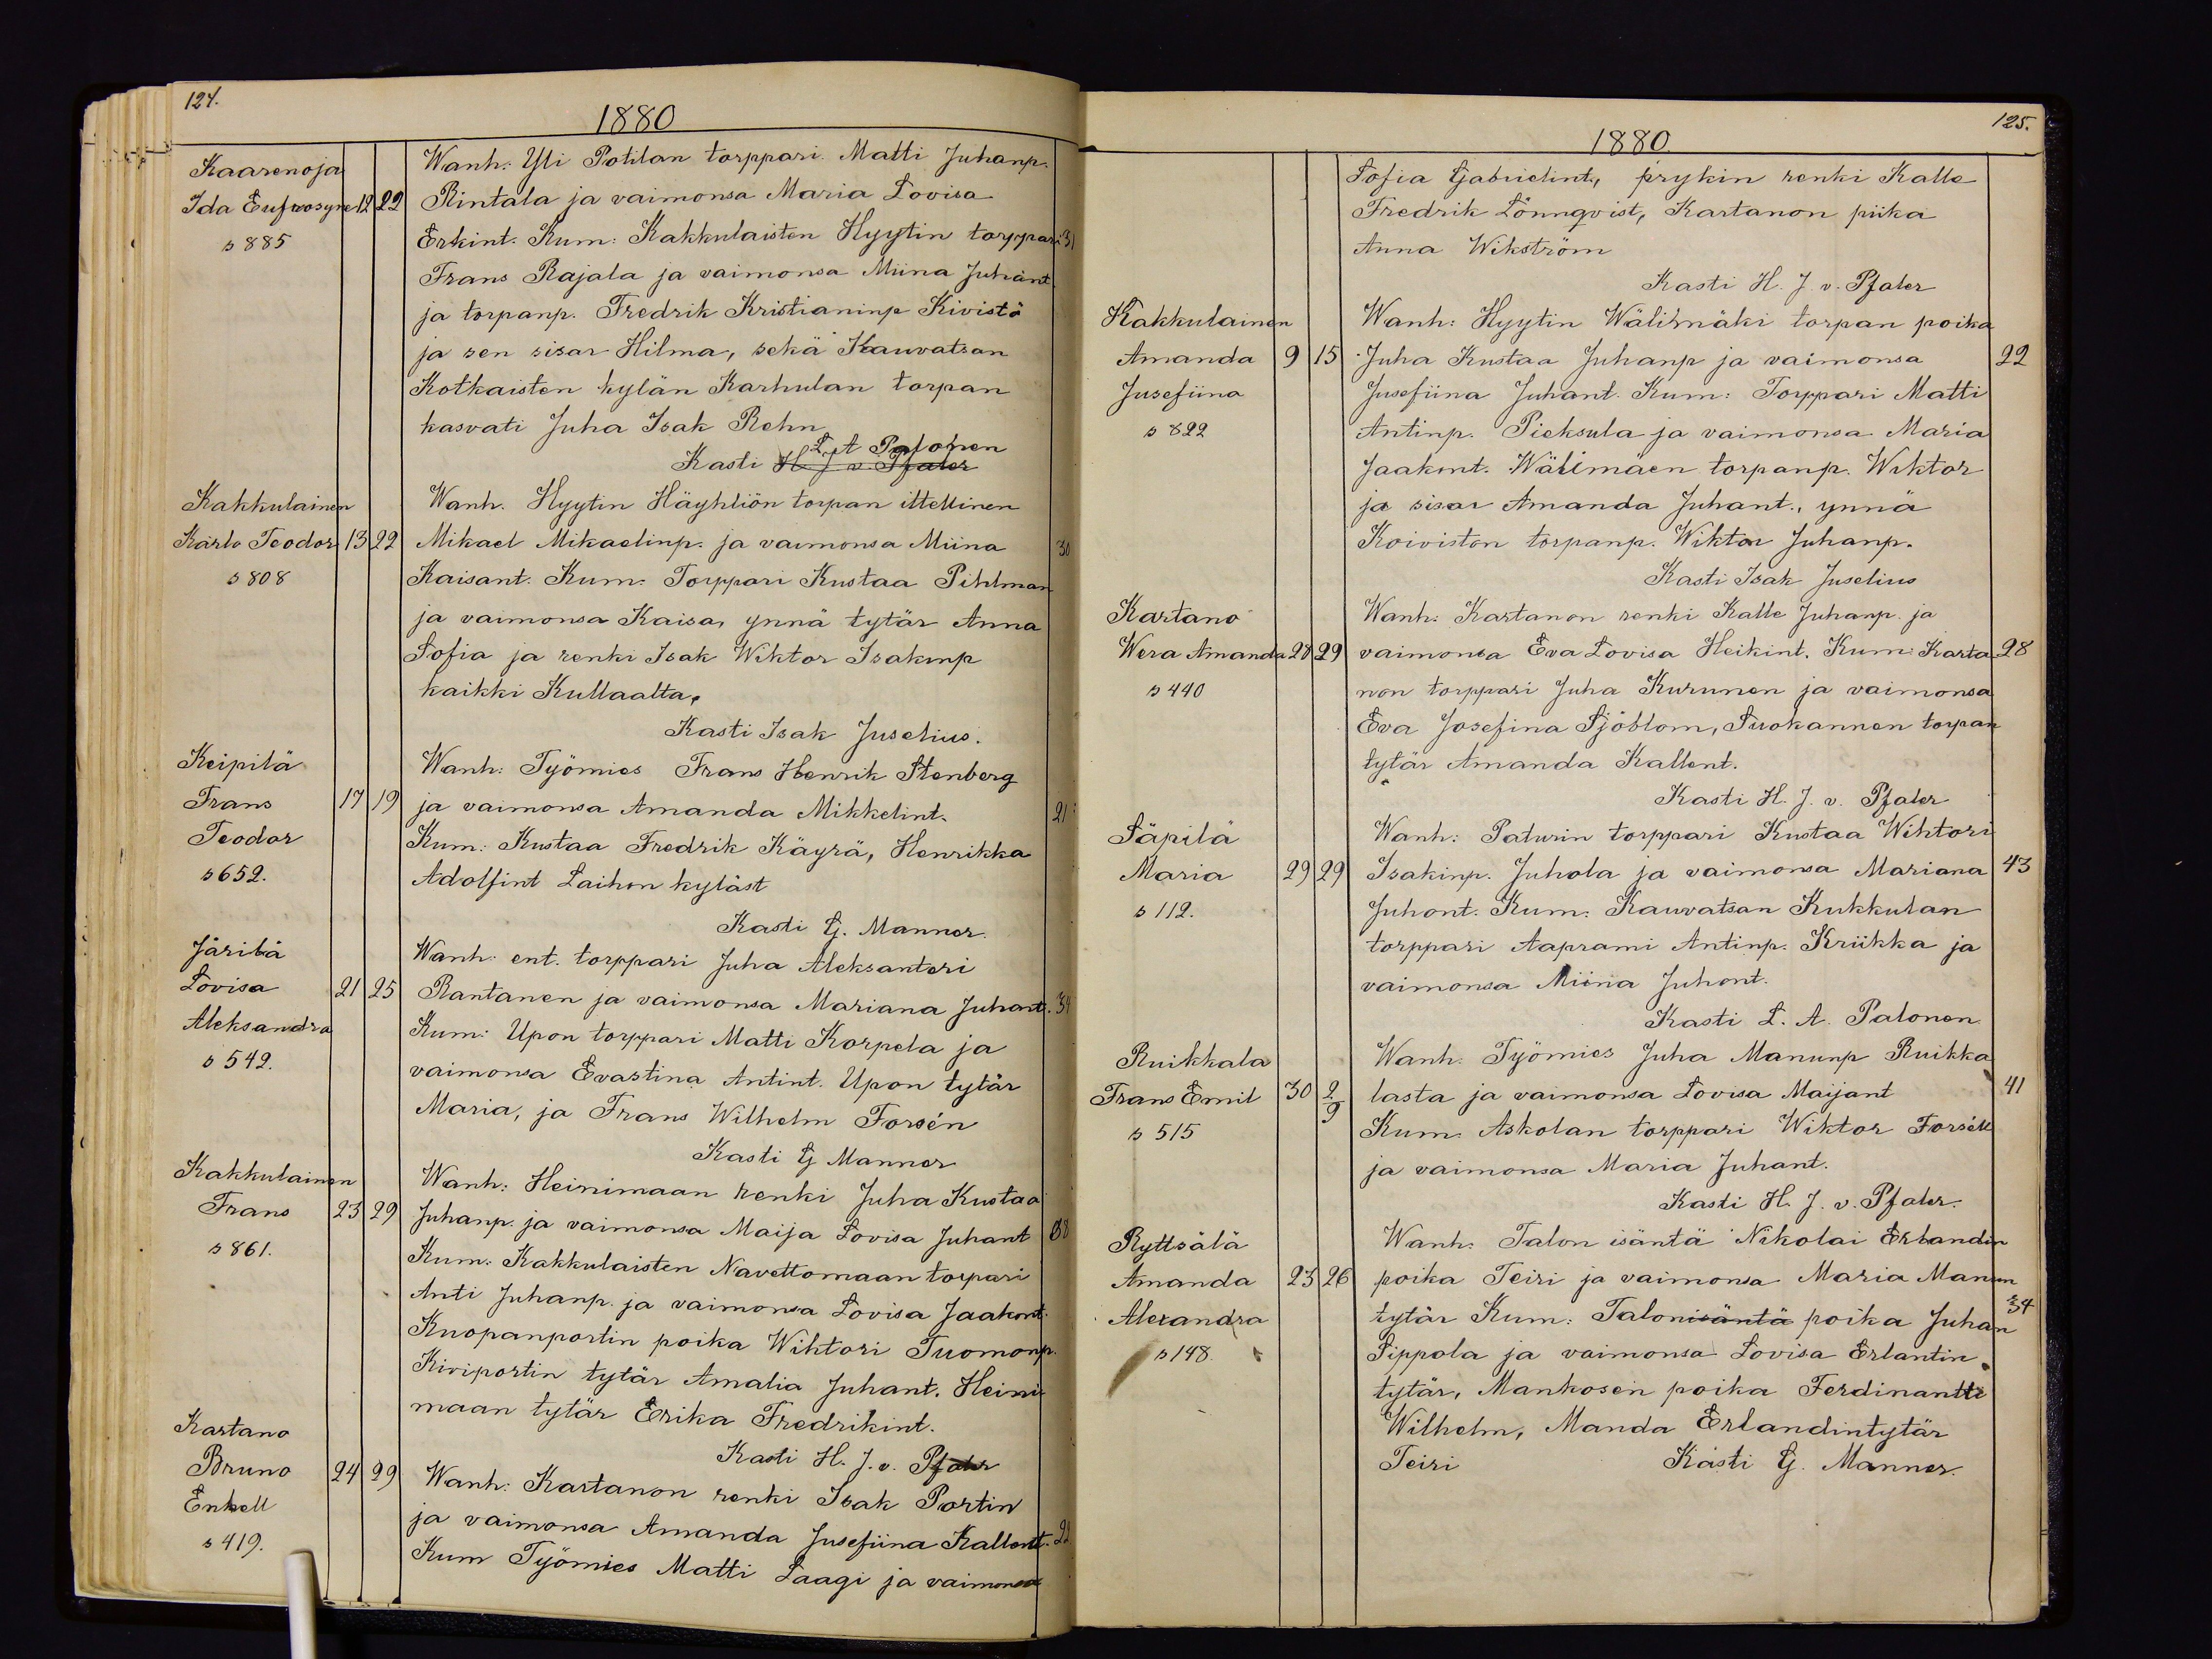 124.
1880
Kaarenoja
Ida Eufrosyne 12 22
s 885
Wanh: Yli Potilan torppari Matti Juhanp.
Rintala ja vaimonsa Maria Lovisa
Erkint. Kum: Kakkulaisten Hyytin torppari 31
Frans Rajala ja vaimonsa Miina Juhant
ja torpanp. Fredrik Kristianinp Kivistö
ja sen sisar Hilma, sekä Kauvatsan
Kotkaisten kylän Karhulan torpan
kasvati Juha Isak Rehn
L. A Palonen
Kasti H J v. Pfaler
Kakkulainen
Karlo Teodor 13 22
s 808
Wanh. Hyytin Häyhliön torpan ittellinen
Mikael Mikaelinp. ja vaimonsa Miina 30
Kaisant. Kum: Torppari Kustaa Pihlman
ja vaimonsa Kaisa, ynnä tytär Anna
Sofia ja renki Isak Wiktor Isakinp
kaikki Kullaalta,
Kasti Isak Juselius.
Keipilä
Frans 17 19
Teodor
s 652.
Wanh: Työmies Frans Henrik Stenberg
ja vaimonsa Amanda Mikkelint. 21
Kum: Kustaa Fredrik Käyrä, Henrikka
Adolfint Laihon kyläst
Kasti G. Manner.
Järilä
Lovisa 21 25
Aleksandra
s 542.
Wanh: ent. torppari Juha Aleksanteri
Rantanen ja vaimonsa Mariana Juhant. 34
Kum: Upon torppari Matti Korpela ja
vaimonsa Evastina Antint. Upon tytär
Maria, ja Frans Wilhelm Forsén
Kasti G Manner
Kakkulainen
Frans 23 29
s 861.
Wanh: Heinimaan renki Juha Kustaa
Juhanp. ja vaimonsa Maija Lovisa Juhant
Kum: Kakkulaisten Navettomaan torpari
Anti Juhanp. ja vaimonsa Lovisa Jaakont.
Kuopanportin poika Wihtori Tuomonp.
Kiviportin tytär Amalia Juhant. Heini
maan tytär Erika Fredrikint.
Kasti H. J. v. Pfaler
Kartano
Bruno 24 29
Enkell
s 419.
Wanh: Kartanon renki Isak Portin
ja vaimonsa Amanda Jusefiina Kallent. 22
Kum Työmies Matti Laagi ja vaimonsa
125.
1880
Sofia Gabrielint, prykin renki Kalle
Fredrik Lönnqvist, Kartanon piika
Anna Wikström
Kasti H. J. v. Pfaler
Kakkulainen
Amanda 9 15
Jusefiina
s 822
Wanh: Hyytin Wälimäki torpan poika
Juha Kustaa Juhanp ja vaimonsa 22
Jusefiina Juhant. Kum: Torppari Matti
Antinp. Pieksula ja vaimonsa Maria
Jaakint. Wälimäen torpanp. Wiktor
ja sisar Amanda Juhant., ynnä
Koiviston torpanp. Wiktor Juhanp.
Kasti Isak Juselius
Kartano
Wera Amanda 28 29
s 440
Wanh: Kartanon renki Kalle Juhanp. ja
vaimonsa Eva Lovisa Heikint. Kum: Karta 28
non torppari Juha Kurunen ja vaimonsa
Eva Josefina Sjöblom, Suokannen torpan
tytär Amanda Kallent.
Kasti H. J. v. Pfaler
Säpilä
Maria 29 29
s 112.
Wanh: Paturin torppari Kustaa Wihtori
Isakinp. Juhola ja vaimonsa Mariana 43
Juhont. Kum: Kauvatsan Kukkulan
torppari Aaprami Antinp. Kriikka ja
vaimonsa Miina Juhont.
Kasti L. A. Palonen
Ruikkala
Frans Emil 30 2/9
s 515
Wanh. Työmies Juha Manunp Ruikka
lasta ja vaimonsa Lovisa Maijant 41
Kum. Askolan torppari Wiktor Forséll
ja vaimonsa Maria Juhant.
Kasti H. J. v. Pfaler.
Ryttsälä
Amanda 23 26
Alexandra
s 148.
Wanh: Talon isäntä Nikolai Erlandin
poika Teiri ja vaimonsa Maria Manun
tytär Kum: Talonisäntä poika Juhan 34
Sippola ja vaimonsa Lovisa Erlantin
tytär, Mankosen poika Ferdinantti
Wilhelm, Manda Erlandintytär
Teiri Kasti G. Manner.